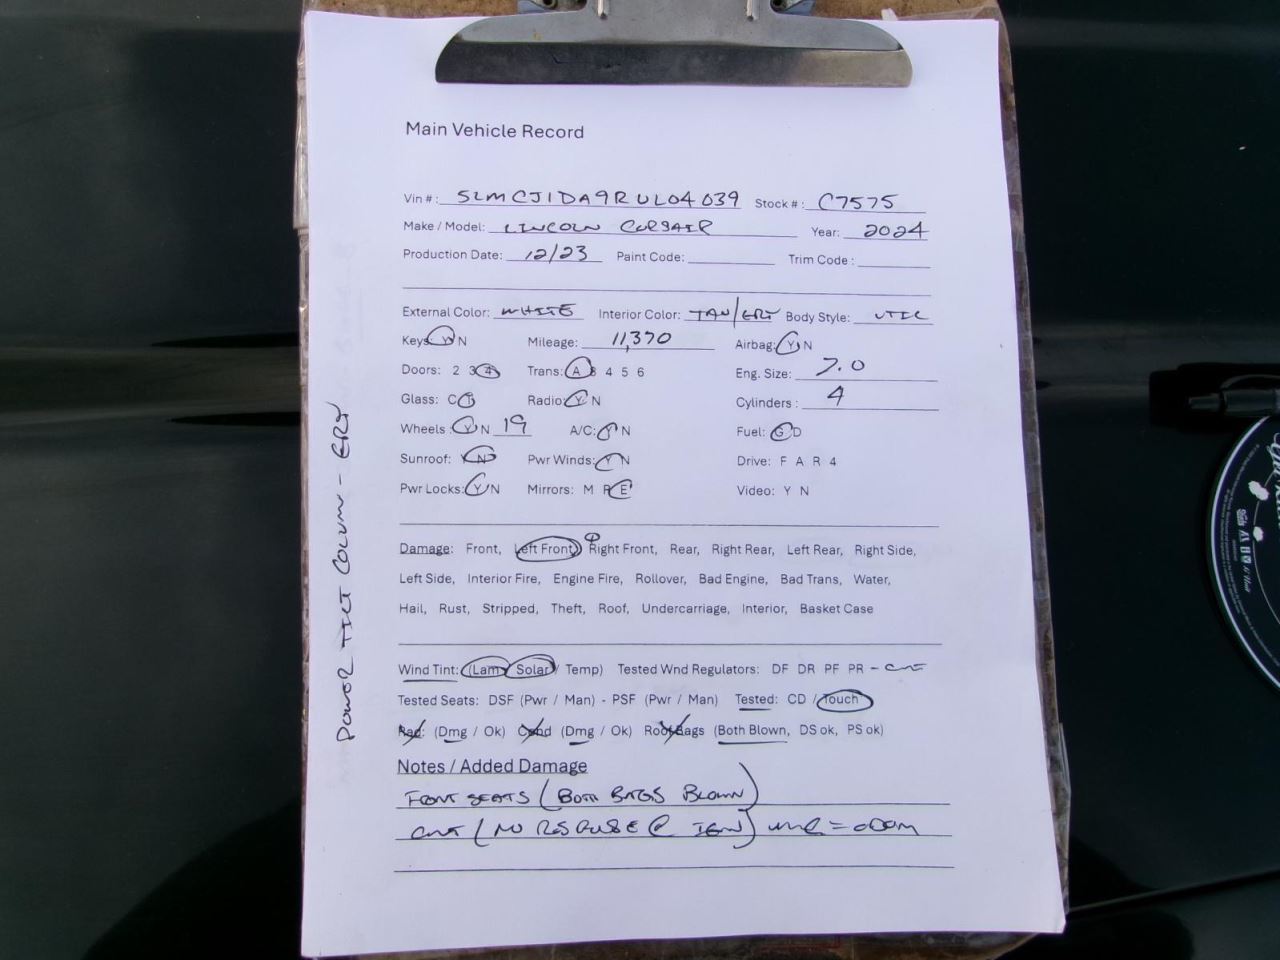 Main Vehicle Record
Vin #: 5LMCJ1DA9RUL04039 Stock #: C7575
Make / Model: LINCOLN CORSAIR Year: 2024
Production Date: 12/23 Paint Code: Trim Code:
External Color: WHITE Interior Color: TAN/GRY Body Style: UTIL
Keys: Y N Mileage: 11,370 Airbag: Y N
Doors: 2 3 4 Trans: A 3 4 5 6 Eng. Size: 2.0
Glass: C T Radio: Y N Cylinders: 4
Wheels: Y N 19 A/C: Y N Fuel: G D
Sunroof: Y N Pwr Winds: Y N Drive: F A R 4
Pwr Locks: Y N Mirrors: M P E Video: Y N
Damage: Front, Left Front, Right Front, Rear, Right Rear, Left Rear, Right Side,
Left Side, Interior Fire, Engine Fire, Rollover, Bad Engine, Bad Trans, Water,
Hail, Rust, Stripped, Theft, Roof, Undercarriage, Interior, Basket Case
Wind Tint: (Lam / Solar / Temp) Tested Wnd Regulators: DF DR PF PR - CNT
Tested Seats: DSF (Pwr / Man) - PSF (Pwr / Man) Tested: CD / Touch
Rad: (Dmg / Ok) Cond (Dmg / Ok) Roof Bags (Both Blown, DS ok, PS ok)
Notes / Added Damage
FRONT SEATS (BOTH BAGS BLOWN)
CNT (NO RESPONSE @ IGN) = ODOM
POWER TILT COLUMN - GRY